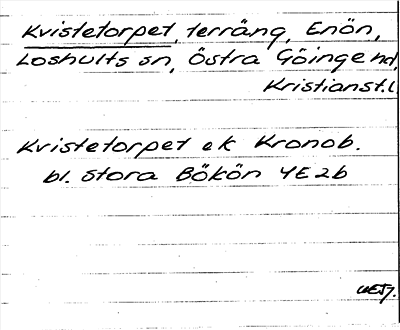 Kvistetorpet, terräng, Enön,
Loshults sn, Östra Göinge hd,
Kristianst.l.
Kvistetorpet ek Kronob.
bl. Stora Bökön 4E2b